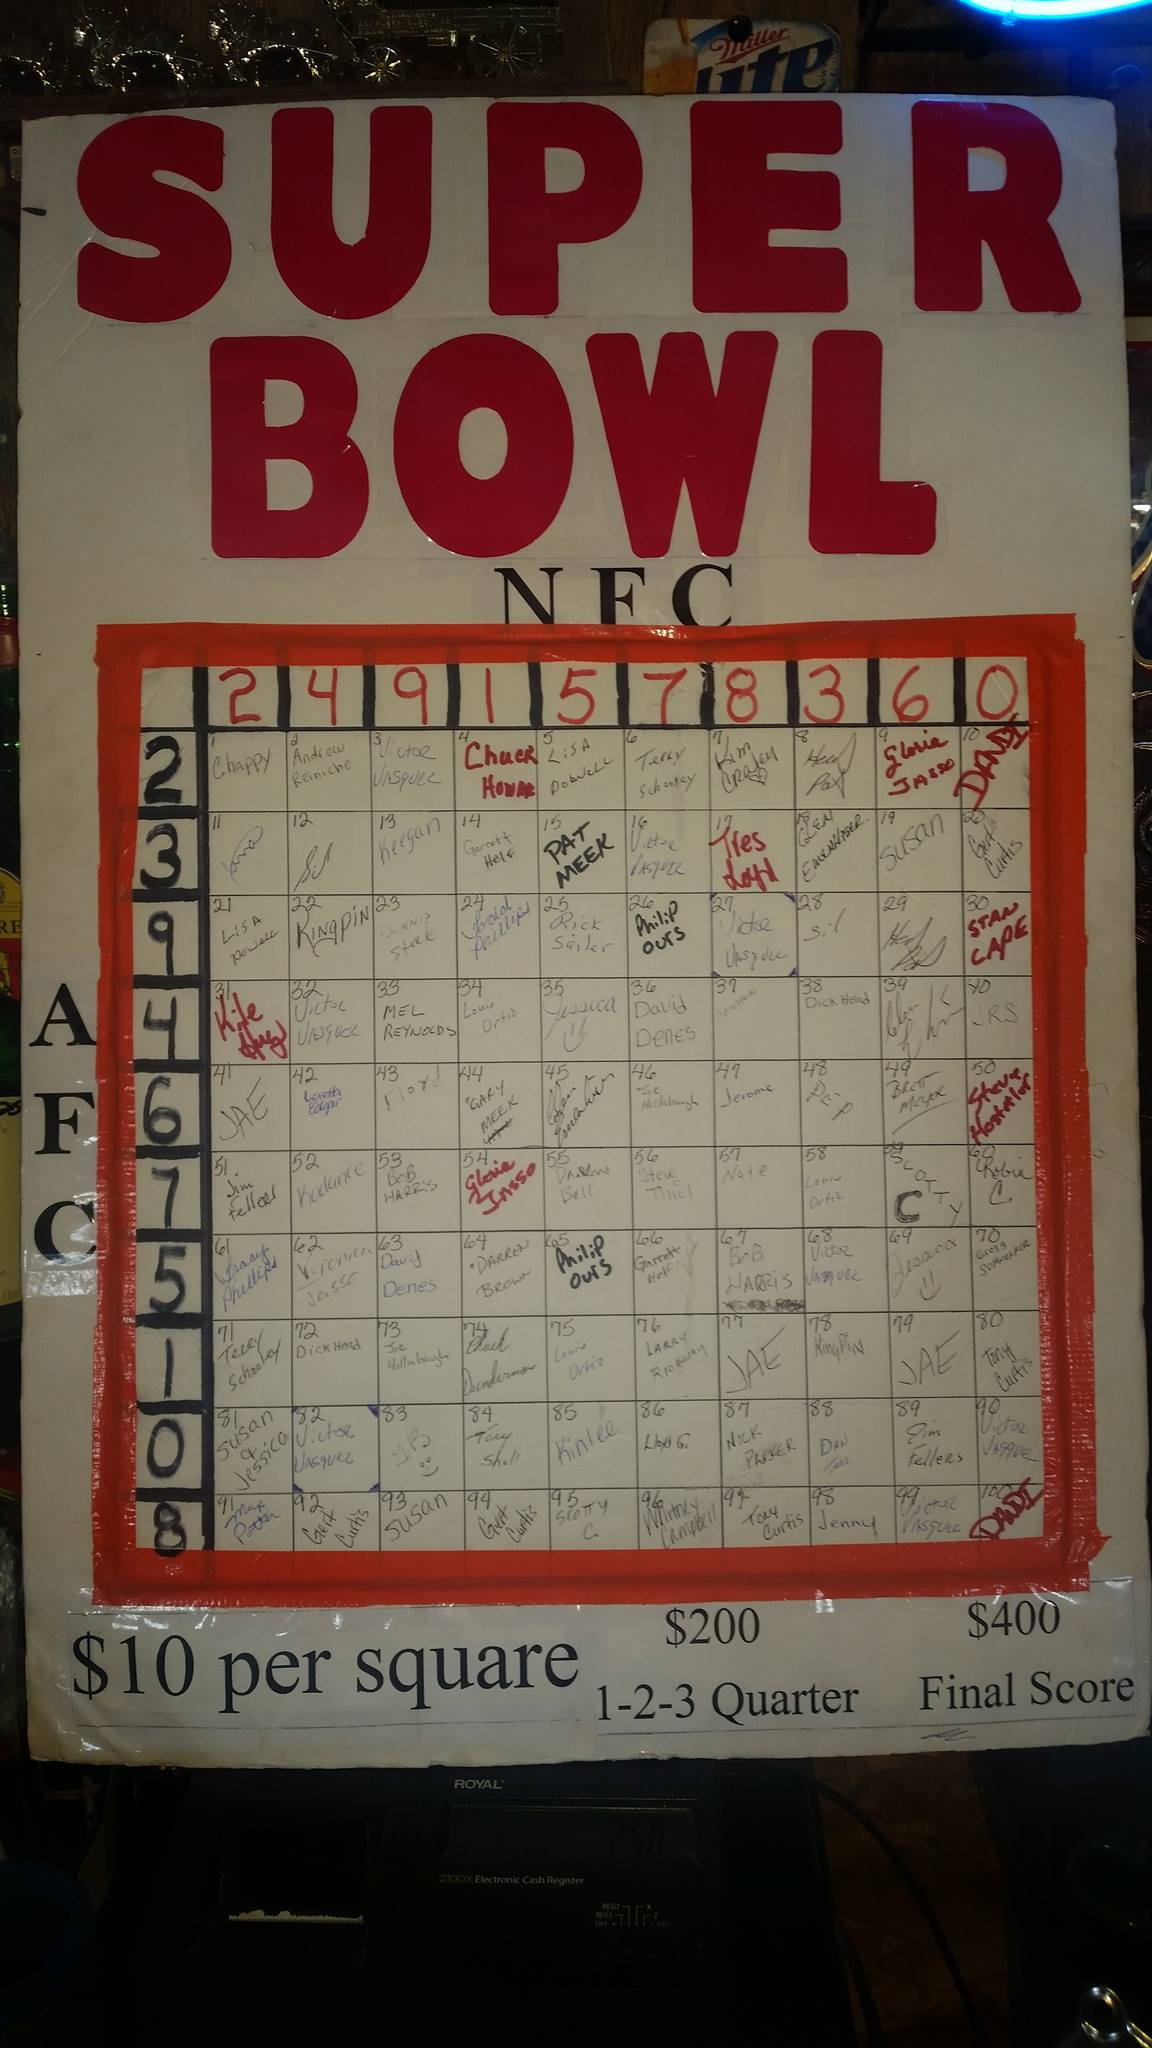 Miller
Lite
SUPER
BOWL
NFC
2 4 9 1 5 7 8 3 6 0
AFC
2
1 Chappy
2 Andrew Reiniche
3 Victor Vasquez
4 Chuck
5 Lisa Powell
6 Terry Schooley
7 Kim
8
9 Gloria Jasso
10 DANDI
3
11
12
13 Keegan
14 Garrett Helf
15 PAT MEEK
16 Victor Vasquez
17 Tres
18 GLEN
19 SUSAN
20 Gert Curtis
9
21 Lisa Powell
22 KingPiN
23 Dennis
24 Phillips
25 Rick Seiler
26 Philip OURS
27 Victor Vasquez
28 Sil
29
30 STAN CAPE
4
31
32 Victor Vasquez
33 MEL REYNOLDS
34 Louie Ortiz
35 Jessica
36 David Denes
37
38 Dick Head
39
40 JRS
6
41 JAE
42
43
44 GARY MEEK
45
46 Joe Hollabaugh
47 Jerome
48
49 BRETT MEYER
50 Steve
7
51 Jim Fellers
52 Kadance
53 BOB HARRIS
54 Gloria Jasso
55 Bell
56 Steve Thiel
57 Nate
58 Louie Ortiz
59 SCOTTY C
60 Robin C.
5
61 Phillips
62 Veronica Jasso
63 David Denes
64 DARREN BROWN
65 Philip OURS
66 Garrett Helf
67 BOB HARRIS
68 Victor Vasquez
69 Jessica
70
1
71 Terry Schooley
72 Dick Head
73 Joe Hollabaugh
74
75 Louie Ortiz
76 LARRY
77 JAE
78 KingPiN
79 JAE
80 Tony Curtis
0
81 Susan & Jessica
82 Victor Vasquez
83 JB
84 Tony
85 Kinlee
86 Lloyd G.
87 NICK PARKER
88 DAN
89 Jim Fellers
90 Victor Vasquez
8
91 Max
92 Gert Curtis
93 SUSAN
94 Gert Curtis
95 SCOTTY C.
96 Whitney Campbell
97 Tony Curtis
98 Jenny
99 Victor Vasquez
100 DANDI
$10 per square
$200
1-2-3 Quarter
$400
Final Score
ROYAL
210DX Electronic Cash Register